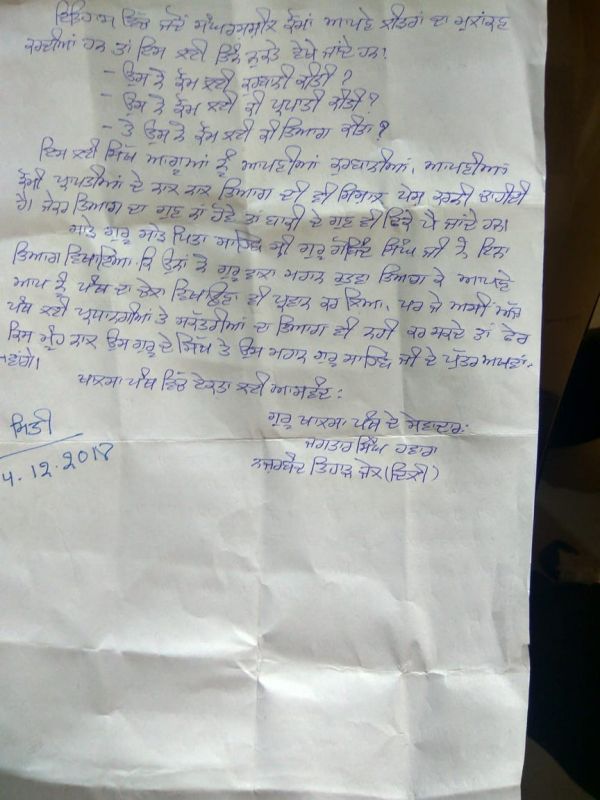 ਇਤਿਹਾਸ ਵਿੱਚ ਜਦੋਂ ਸੰਘਰਸ਼ਸ਼ੀਲ ਕੌਮਾਂ ਆਪਣੇ ਲੀਡਰਾਂ ਦਾ ਮੁਲਾਂਕਣ
ਕਰਦੀਆਂ ਹਨ ਤਾਂ ਇਸ ਲਈ ਤਿੰਨ ਨੁਕਤੇ ਵੇਖੇ ਜਾਂਦੇ ਹਨ।
- ਉਸ ਨੇ ਕੌਮ ਲਈ ਕੁਰਬਾਨੀ ਕੀਤੀ?
- ਉਸ ਨੇ ਕੌਮ ਲਈ ਕੀ ਪ੍ਰਾਪਤੀ ਕੀਤੀ?
- ਤੇ ਉਸ ਨੇ ਕੌਮ ਲਈ ਕੀ ਤਿਆਗ ਕੀਤਾ?
ਇਸ ਲਈ ਸਿੱਖ ਆਗੂਆਂ ਨੂੰ ਆਪਣੀਆਂ ਕੁਰਬਾਨੀਆਂ, ਆਪਣੀਆਂ
ਕੌਮੀ ਪ੍ਰਾਪਤੀਆਂ ਦੇ ਨਾਲ ਨਾਲ ਤਿਆਗ ਦੀ ਵੀ ਮਿਸਾਲ ਪੇਸ਼ ਕਰਨੀ ਚਾਹੀਦੀ
ਹੈ। ਜੇਕਰ ਤਿਆਗ ਦਾ ਗੁਣ ਨਾ ਹੋਵੇ ਤਾਂ ਬਾਕੀ ਦੇ ਗੁਣ ਵੀ ਫਿੱਕੇ ਪੈ ਜਾਂਦੇ ਹਨ।
ਸਾਡੇ ਗੁਰੂ ਸਾਡੇ ਪਿਤਾ ਸਾਹਿਬ ਸ੍ਰੀ ਗੁਰੂ ਗੋਬਿੰਦ ਸਿੰਘ ਜੀ ਨੇ ਇੰਨਾ
ਤਿਆਗ ਵਿਖਾਇਆ ਕਿ ਉਨਾਂ ਨੇ ਗੁਰੂ ਵਾਲਾ ਮਹਾਨ ਰੁਤਬਾ ਤਿਆਗ ਕੇ ਆਪਣੇ
ਆਪ ਨੂੰ ਪੰਥ ਦਾ ਚੇਲਾ ਵਿਖਾਉਣਾ ਵੀ ਪ੍ਰਵਾਨ ਕਰ ਲਿਆ, ਪਰ ਜੇ ਅਸੀਂ ਅੱਜ
ਪੰਥ ਲਈ ਪ੍ਰਧਾਨਗੀਆਂ ਤੇ ਸਕੱਤਰੀਆਂ ਦਾ ਤਿਆਗ ਵੀ ਨਹੀਂ ਕਰ ਸਕਦੇ ਤਾਂ ਫੇਰ
ਕਿਸ ਮੂੰਹ ਨਾਲ ਉਸ ਗੁਰੂ ਦੇ ਸਿੱਖ ਤੇ ਉਸ ਮਹਾਨ ਗੁਰੂ ਸਾਹਿਬ ਜੀ ਦੇ ਪੁੱਤਰ ਅਖਵਾ-
-ਵਾਂਗੇ।
ਖਾਲਸਾ ਪੰਥ ਵਿੱਚ ਏਕਤਾ ਲਈ ਆਸਵੰਦ:
ਗੁਰੂ ਖਾਲਸਾ ਪੰਥ ਦੇ ਸੇਵਾਦਾਰ:
ਜਗਤਾਰ ਸਿੰਘ ਹਵਾਰਾ
ਨਜ਼ਰਬੰਦ ਤਿਹਾੜ ਜੇਲ (ਦਿੱਲੀ)
ਮਿਤੀ
4.12.2018